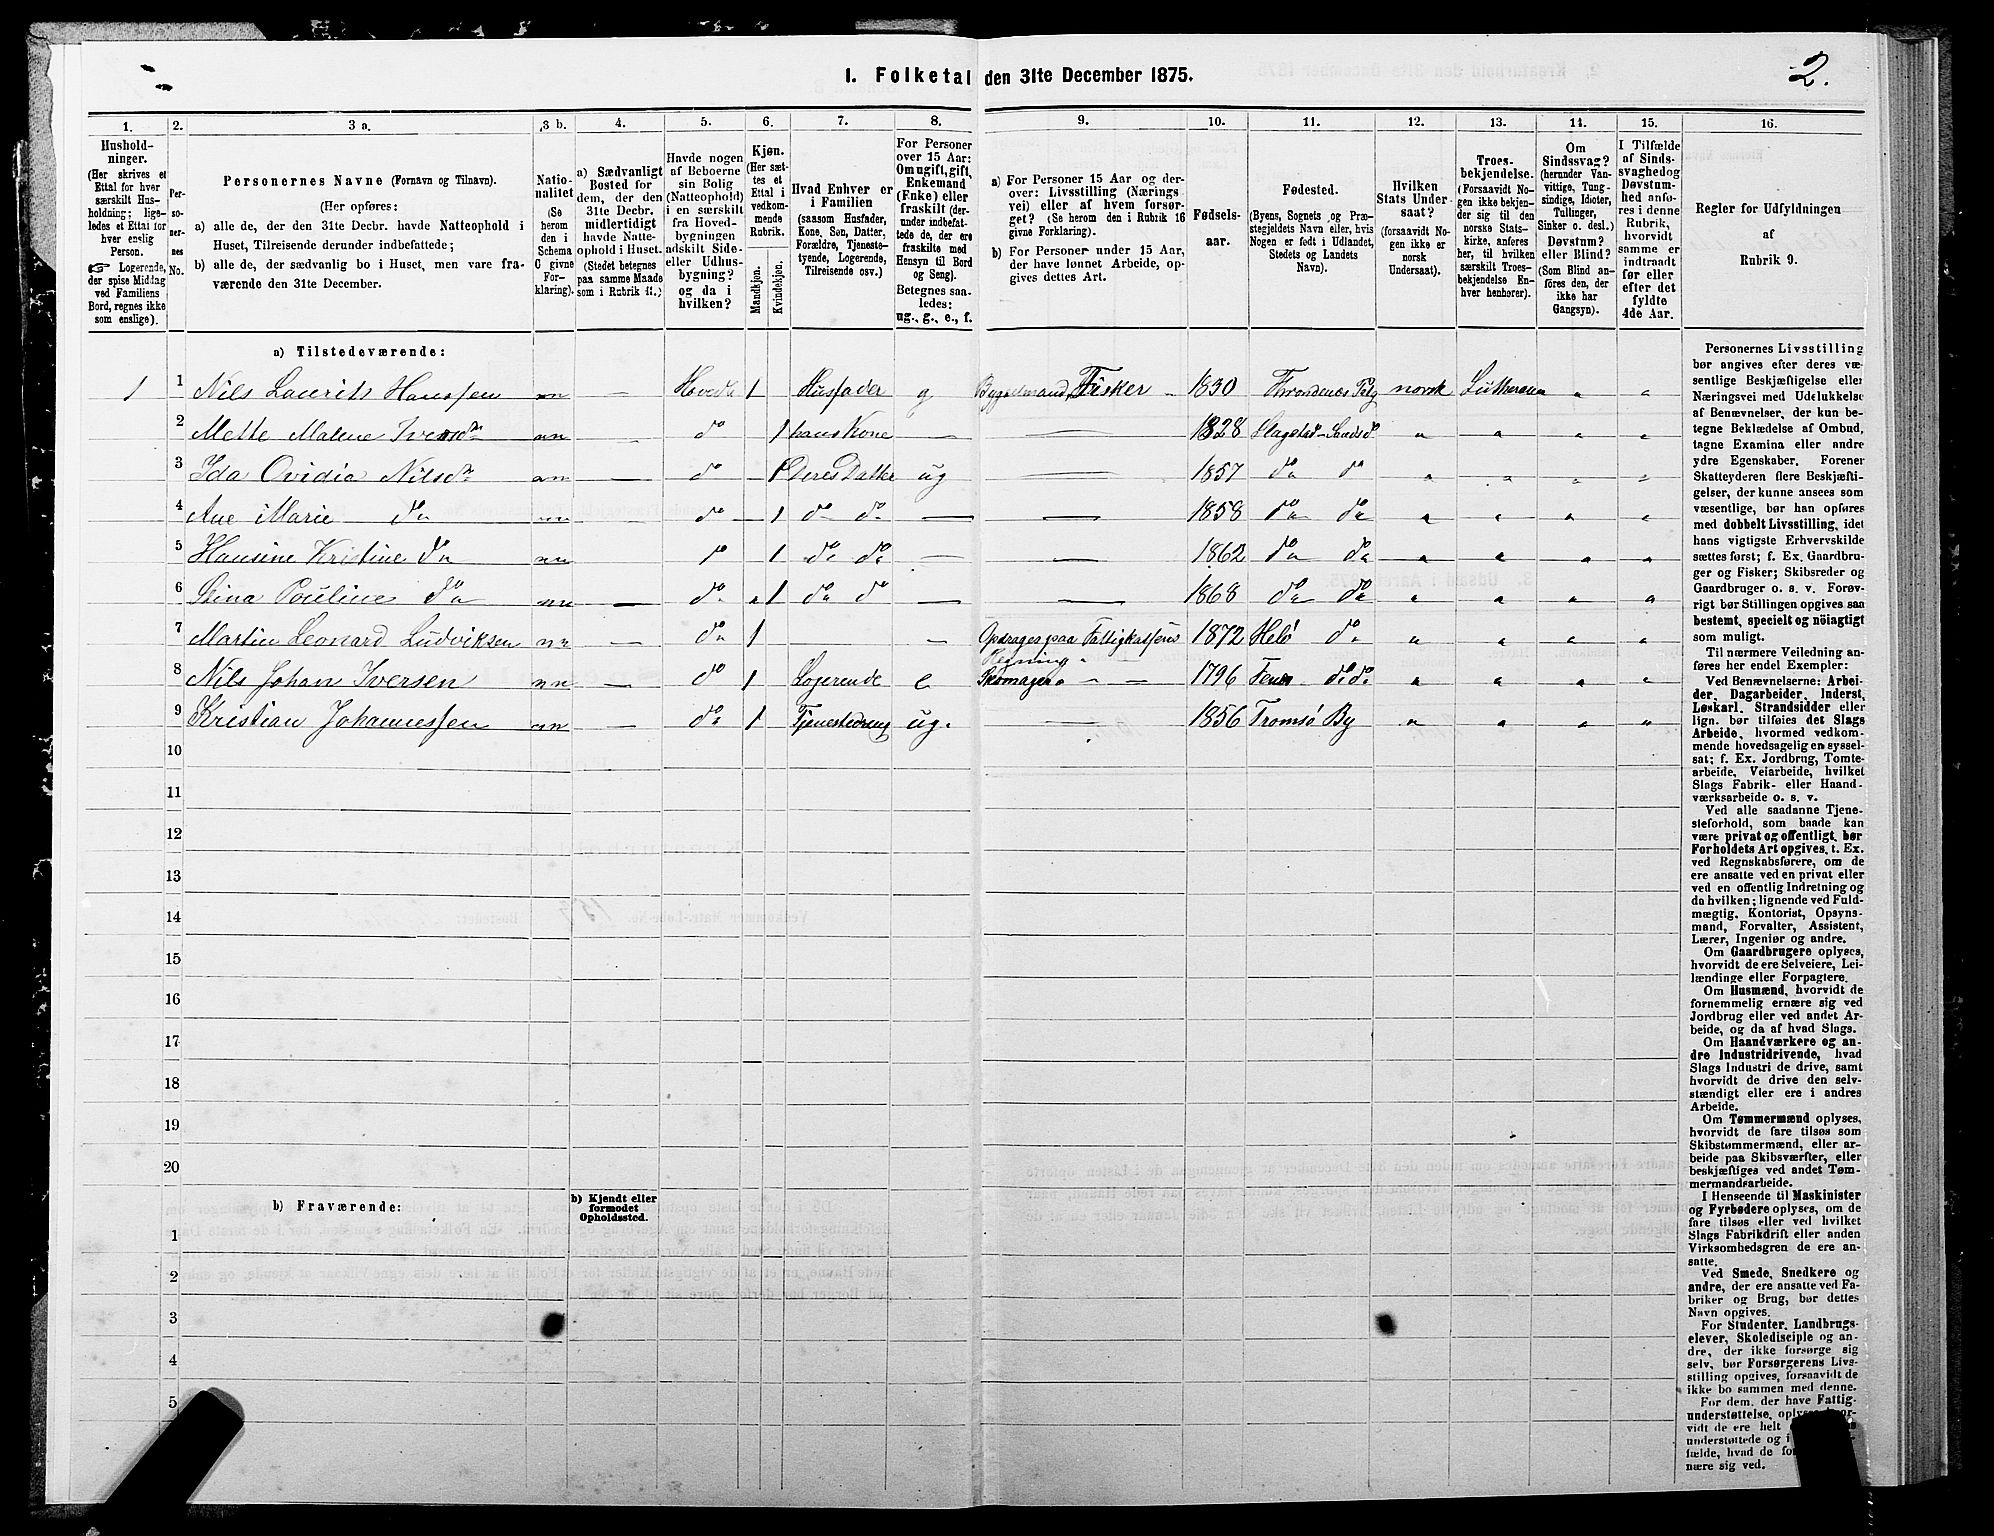 2.
1. Folketal den 31te December 1875.
1. 2. 3 a. 3 b. 4. 5. 6. 7. 8. 9. 10. 11. 12. 13. 14. 15. 16.
Husholdninger. (Her skrives et Ettal for hver særskilt Husholdning; ligeledes et Ettal for hver enslig Person. ☞ Logerende, der spise Middag ved Familiens Bord, regnes ikke som enslige).
Personernes No.
Personernes Navne (Fornavn og Tilnavn).
(Her opføres:
a) alle de, der den 31te Decbr. havde Natteophold i Huset, Tilreisende derunder indbefattede;
b) alle de, der sædvanlig bo i Huset, men vare fraværende den 31te December.
Nationalitet (Se herom den i Schema C givne Forklaring).
a) Sædvanligt Bosted for dem, der den 31te Decbr. midlertidigt havde Natteophold i Huset. (Stedet betegnes paa samme Maade som i Rubrik 11.)
Havde nogen af Beboerne sin Bolig (Natteophold) i en særskilt fra Hovedbygningen adskilt Side- eller Udhusbygning? og da i hvilken?
Kjøn. (Her sættes et Ettal i vedkommende Rubrik. Mandkjøn. Kvindekjøn.
Hvad Enhver er i Familien (saasom Husfader, Kone, Søn, Datter, Forældre, Tjenestetyende, Logerende, Tilreisende osv.)
For Personer over 15 Aar: Om ugift, gift, Enkemand (Enke) eller fraskilt (derunder indbefattede de, der ere fraskilte med Hensyn til Bord og Seng). Betegnes saaledes: ug., g., e., f.
a) For Personer 15 Aar og derover: Livsstilling (Næringsvei) eller af hvem forsørget? (Se herom den i Rubrik 16 givne Forklaring.)
b) For Personer under 15 Aar, der have lønnet Arbeide, opgives dettes Art.
Fødselsaar.
Fødested. (Byens, Sognets og Præstegjeldets Navn eller, hvis Nogen er født i Udlandet, Stedets og Landets Navn).
Hvilken Stats Undersaat? (forsaavidt Nogen ikke er norsk Undersaat).
Troesbekjendelse. (Forsaavidt Nogen ikke bekjender sig til den norske Statskirke, anføres her, til hvilken særskilt Troesbekjendelse Enhver henhører).
Om Sindssvag? (herunder Vanvittige, Tungsindige, Idioter, Tullinger, Sinker o. desl.) Døvstum? eller Blind? (Som Blind anføres den, der ikke har Gangsyn).
I Tilfælde af Sindssvaghed og Døvstumhed anføres i denne Rubrik, hvorvidt samme er indtraadt før eller efter det fyldte 4de Aar.
Regler for Udfyldningen af Rubrik 9.
a) Tilstedeværende:
1 1 Nils Laurits Hanssen nn — 1 Husfader g Fisker 1830 norsk Lutheraner " "
2 Mette Malene Iversdtr nn — do 1 hans Kone — — 1828 " " " "
3 Ida Ovidia Nilsdtr nn — do 1 Deres Datter ug — 1857 do do " " " "
4 Ane Marie do nn — do 1 do do — — 1858 do do " " " "
5 Hansine Kristine do nn — do 1 do do — — 1862 do do " " " "
6 Stina Pouline do nn — do 1 do do — 1868 do do " " " "
7 Martin Leonard Ludviksen nn — do 1 — Opdrages paa Fattigkassens Regning 1872 do " " " "
8 Nils Johan Iversen nn — do 1 Logerende e Skomager 1796 do do " " " "
9 Kristian Johannessen nn — do 1 Tjenestedreng ug. — 1856 Tromsö By " " " "
10
11
12
13
14
15
16
17
18
19
20
b) Fraværende: b) Kjendt eller formodet Opholdssted.
1
2
3
4
5
Personernes Livsstilling
bør angives efter deres væ-
sentlige Beskjæftigelse eller
Næringsvei med Udelukkelse
af Benævnelser, der kun be-
tegne Beklædelse af Ombud,
tagne Examina eller andre
ydre Egenskaber. Forener
Skatteyderen flere Beskjæfti-
gelser, der kunne ansees som
væsentlige, bør han opføres
med dobbelt Livsstilling, idet
hans vigtigste Erhvervskilde
sættes først; f. Ex. Gaardbru-
ger og Fisker; Skibsreder og
Gaardbruger o. s. v. Forøv-
rigt bør Stillingen opgives saa
bestemt, specielt og nöiagtigt
som muligt.
Til nærmere Veiledning an-
føres her endel Exempler:
Ved Benævnelserne: Arbei-
der, Dagarbeider, Inderst,
Løskarl, Strandsidder eller
lign. bør tilføies det Slags
Arbeide, hvormed vedkom-
mende hovedsagelig en syssel-
sat; f. Ex. Jordbrug, Tomte-
arbeide, Veiarbeide, hvilket
Slags Fabrik- eller Haand-
værksarbeide o. s. v.
Ved alle saadanne Tjene-
steforhold, som baade kan
være privat og offentligt, bør
Forholdets Art opgives, t. Ex.
ved Regnskabsførere, om de
ere ansatte ved en privat eller
ved en offentlig Indretning og
da hvilken; lignende ved Fuld-
mægtig, Kontorist, Opsyns-
mand, Forvalter, Assistent,
Lærer, Ingeniør og andre.
Om Gaardbrugere oplyses,
hvorvidt de ere Selveiere, Lei-
lændinge eller Forpagtere.
Om Husmænd, hvorvidt de
fornemmelig ernære sig ved
Jordbrug eller ved andet Ar-
beide, og da af hvad Slags.
Om Haandværkere og an-
dre Industridrivende, hvad
Slags Industri de drive, samt
hvorvidt de drive den selv-
stændigt eller ere i andres
Arbeide.
Om Tømmermænd oplyses,
hvorvidt de fare tilsøs som
Skibstømmermænd, eller ar-
beide paa Skibsværfter, eller
beskjæftiges ved andet Tøm-
mermandsarbeide.
I Henseende til Maskinister
og Fyrbødere oplyses, om de
fare tilsøs eller ved hvilket
Slags Fabrikdrift eller anden
Virksomhedsgren de ere an-
satte.
Ved Smede, Snedkere og
andre, der ere ansatte ved Fa-
briker og Brug, bør dettes
Navn opgives.
For Studenter, Landbrugs-
elever, Skoledisciple og an-
dre, der ikke forsørge sig
selv, bør Forsørgerens Livs-
stilling opgives, forsaavidt de
ikke bo sammen med denne.
For dem, der have Fattig-
understøttelse,
vidt de ere helt
understøttede og i
fælde, hvad de
nære sig ved.